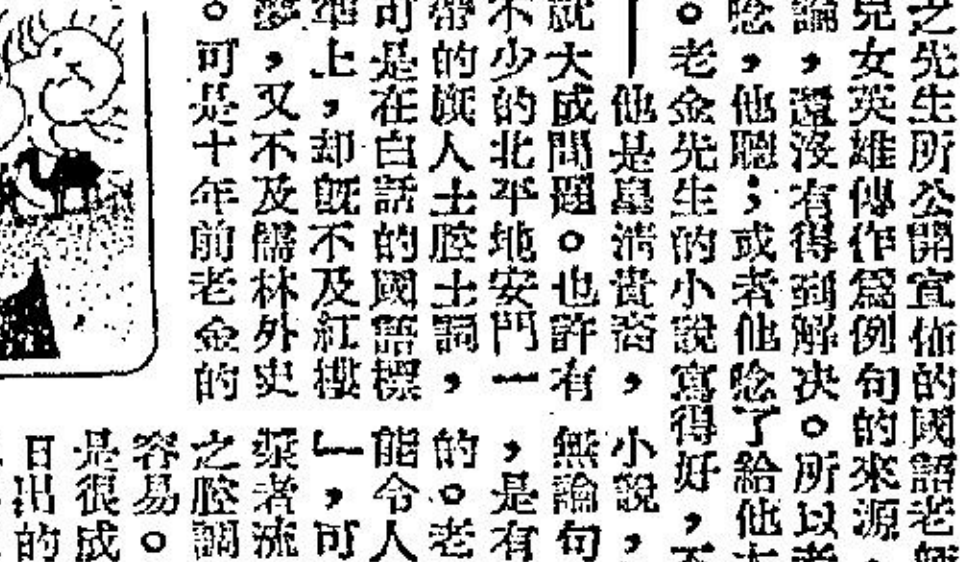 之先生所公開宣佈的國語老師
兒女英雄傳作爲例句的來源,
論,還沒有得到解决。所以老
唸,他聽;或者他唸了給他太
。老金先生的小說寫得好,不
——他是皇清貴裔,
就大成問題。也許有
不少的北平地安門一
帶的旗人土腔土詞,
可是在白話的國語標
準上,却旣不及紅樓
夢,又不及儒林外史
。可是十年前老金的
小說,
無論句
,是有
的。老
能令人
」,可
者流
之腔調
容易。
是很成
日出的